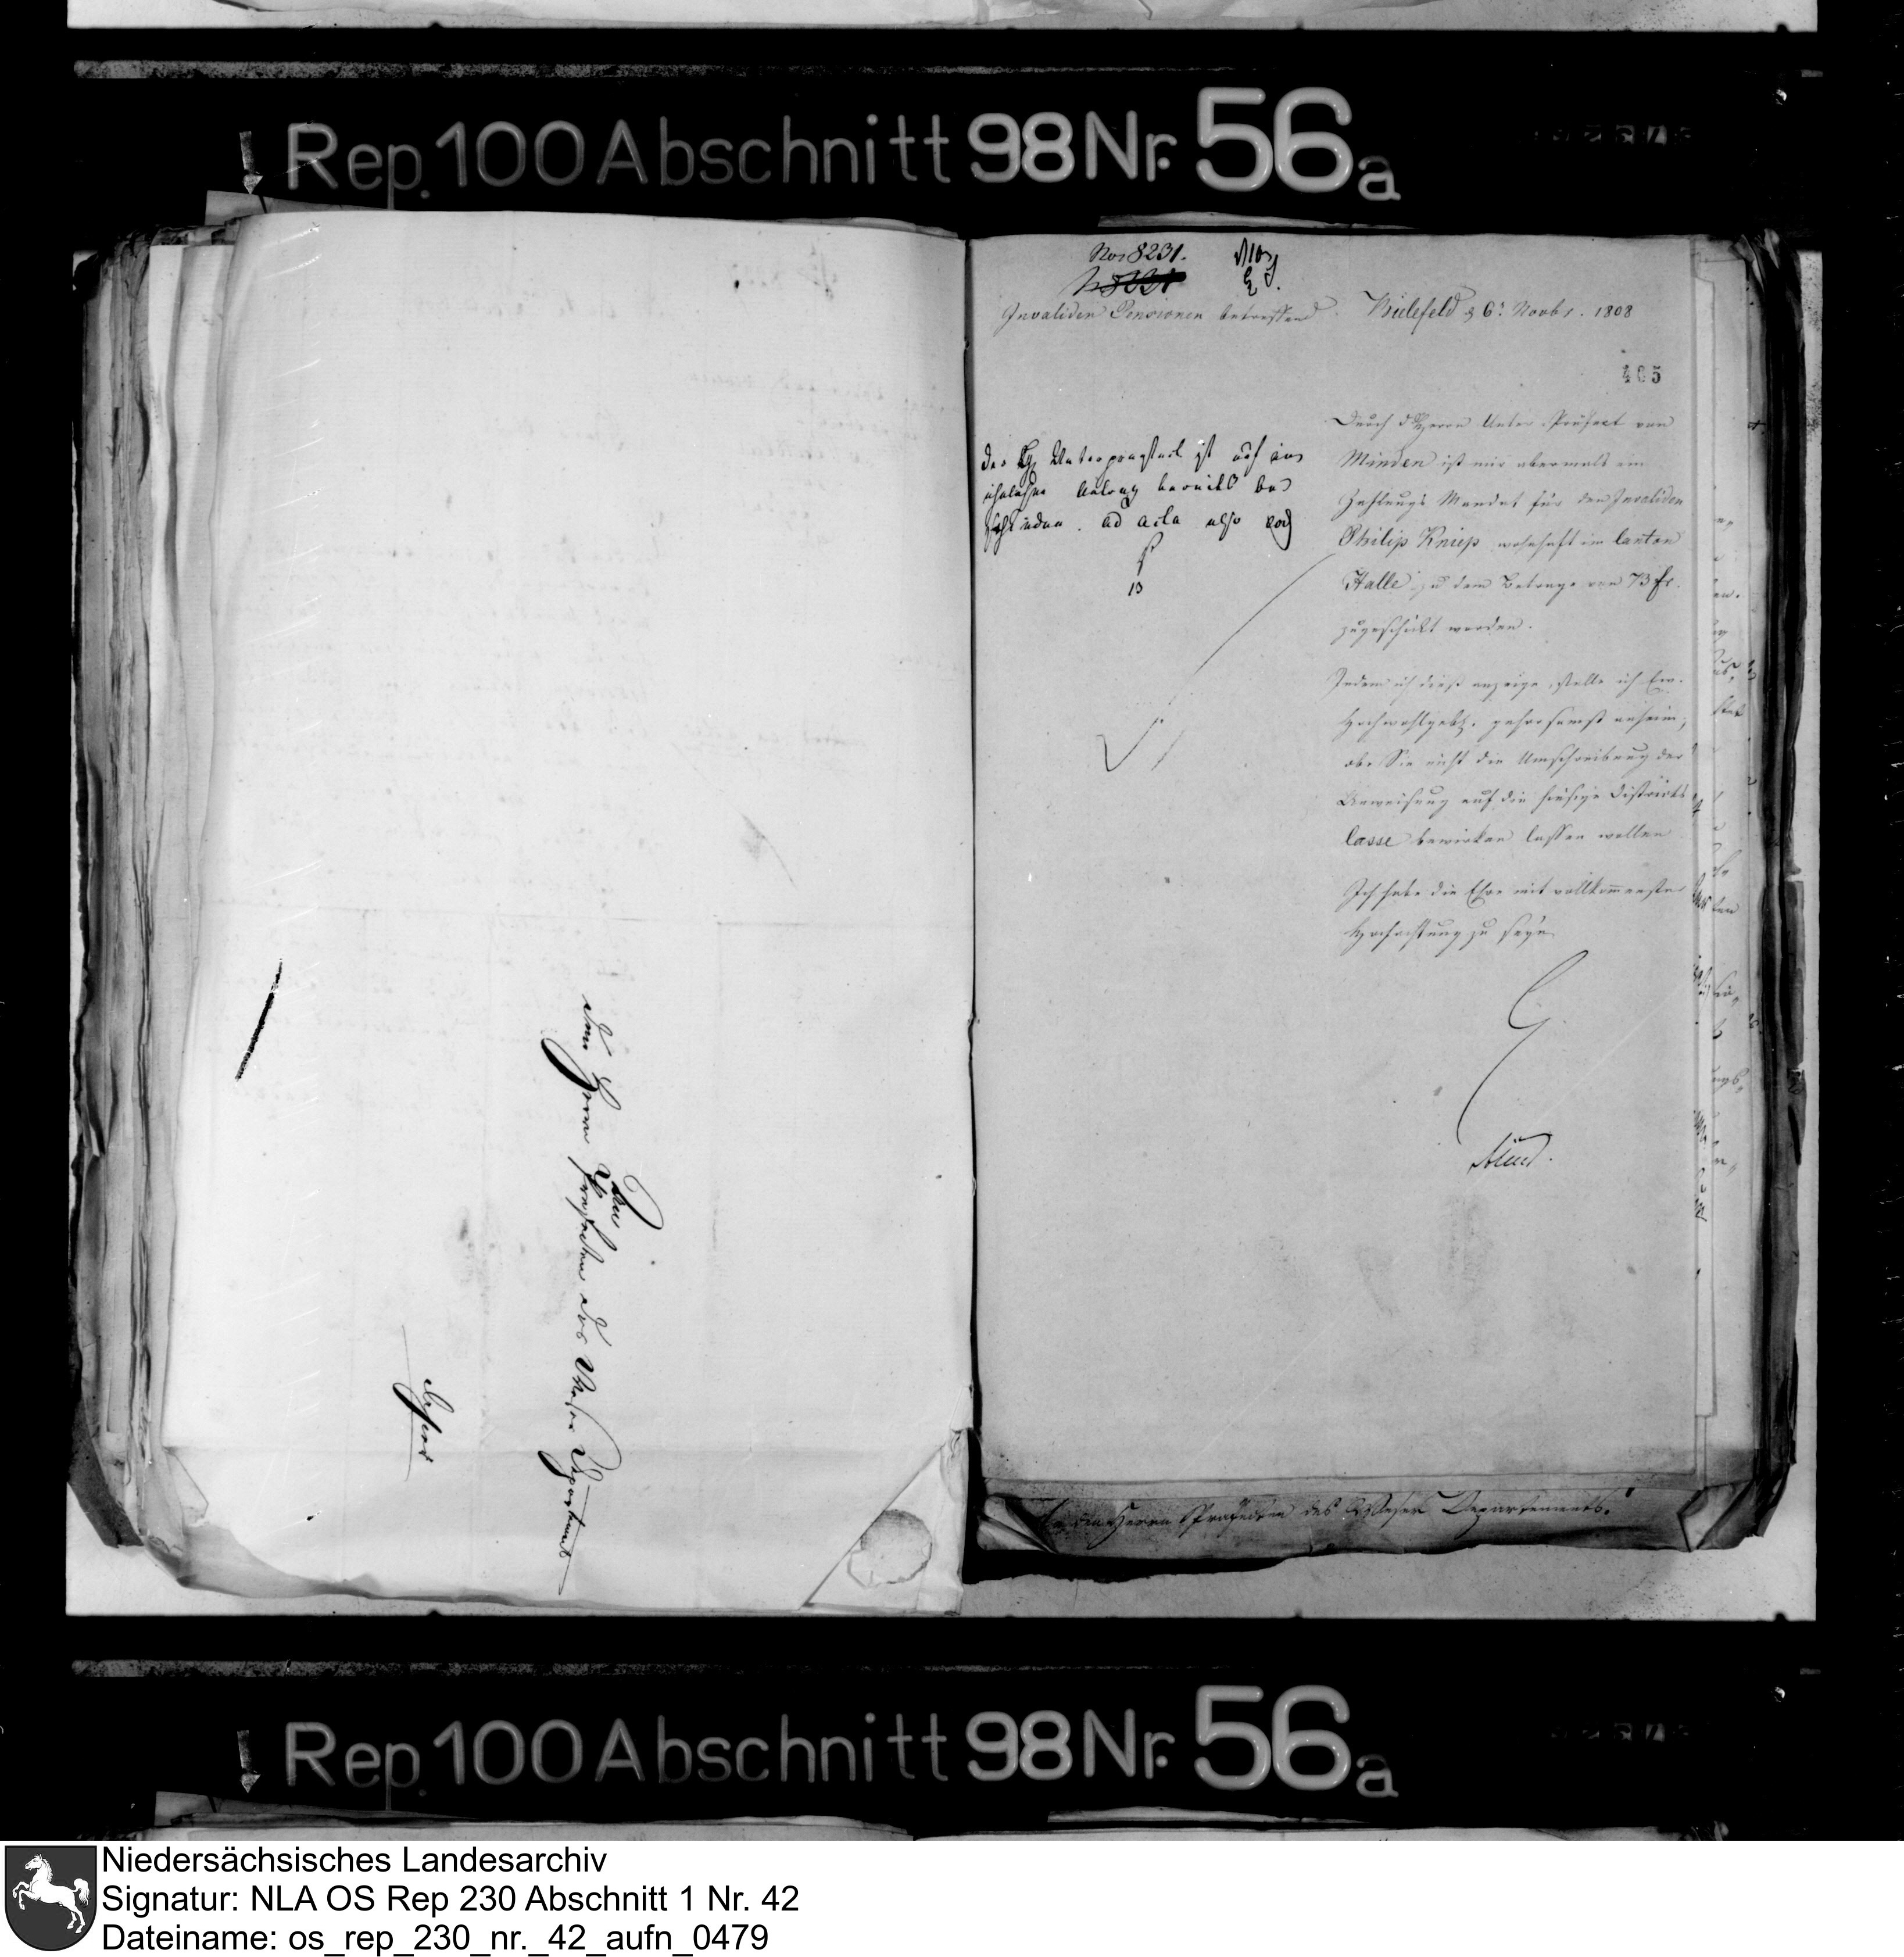 Rep. 100 Abschnitt 98 Nr. 56a
Den
dem Herrn Praefecten des Weser Departements
hier
No. 8231.
Invaliden Pensionen betreffend.
Bielefeld d 6t Novbr. 1808
405
Durch d Herrn Unter-Präfect von
Minden ist mir abermals ein
Zahlungs Mandat für den Invaliden
Philip Kniep wohnhaft im Canton
Halle, zu dem Betrage von 73 fr.
zugeschickt worden.
Indem ich dieß anzeige, stelle ich Ew.
Hochwohlgeb. gehorsamst anheim,
ob Sie nicht die Umschreibung der
Anweisung auf die hiesige Districts
Casse bewirken lassen wollen
Ich habe die Ehre mit vollkommenster
Hochachtung zu seyn
der Unterpraefect ist auf ein
ähnlichen Antrag bereits be
schieden. ad acta also
13
An den Herrn Praefecten des Weser Departements.
Rep. 100 Abschnitt 98 Nr. 56a
Niedersächsisches Landesarchiv
Signatur: NLA OS Rep 230 Abschnitt 1 Nr. 42
Dateiname: os_rep_230_nr._42_aufn_0479